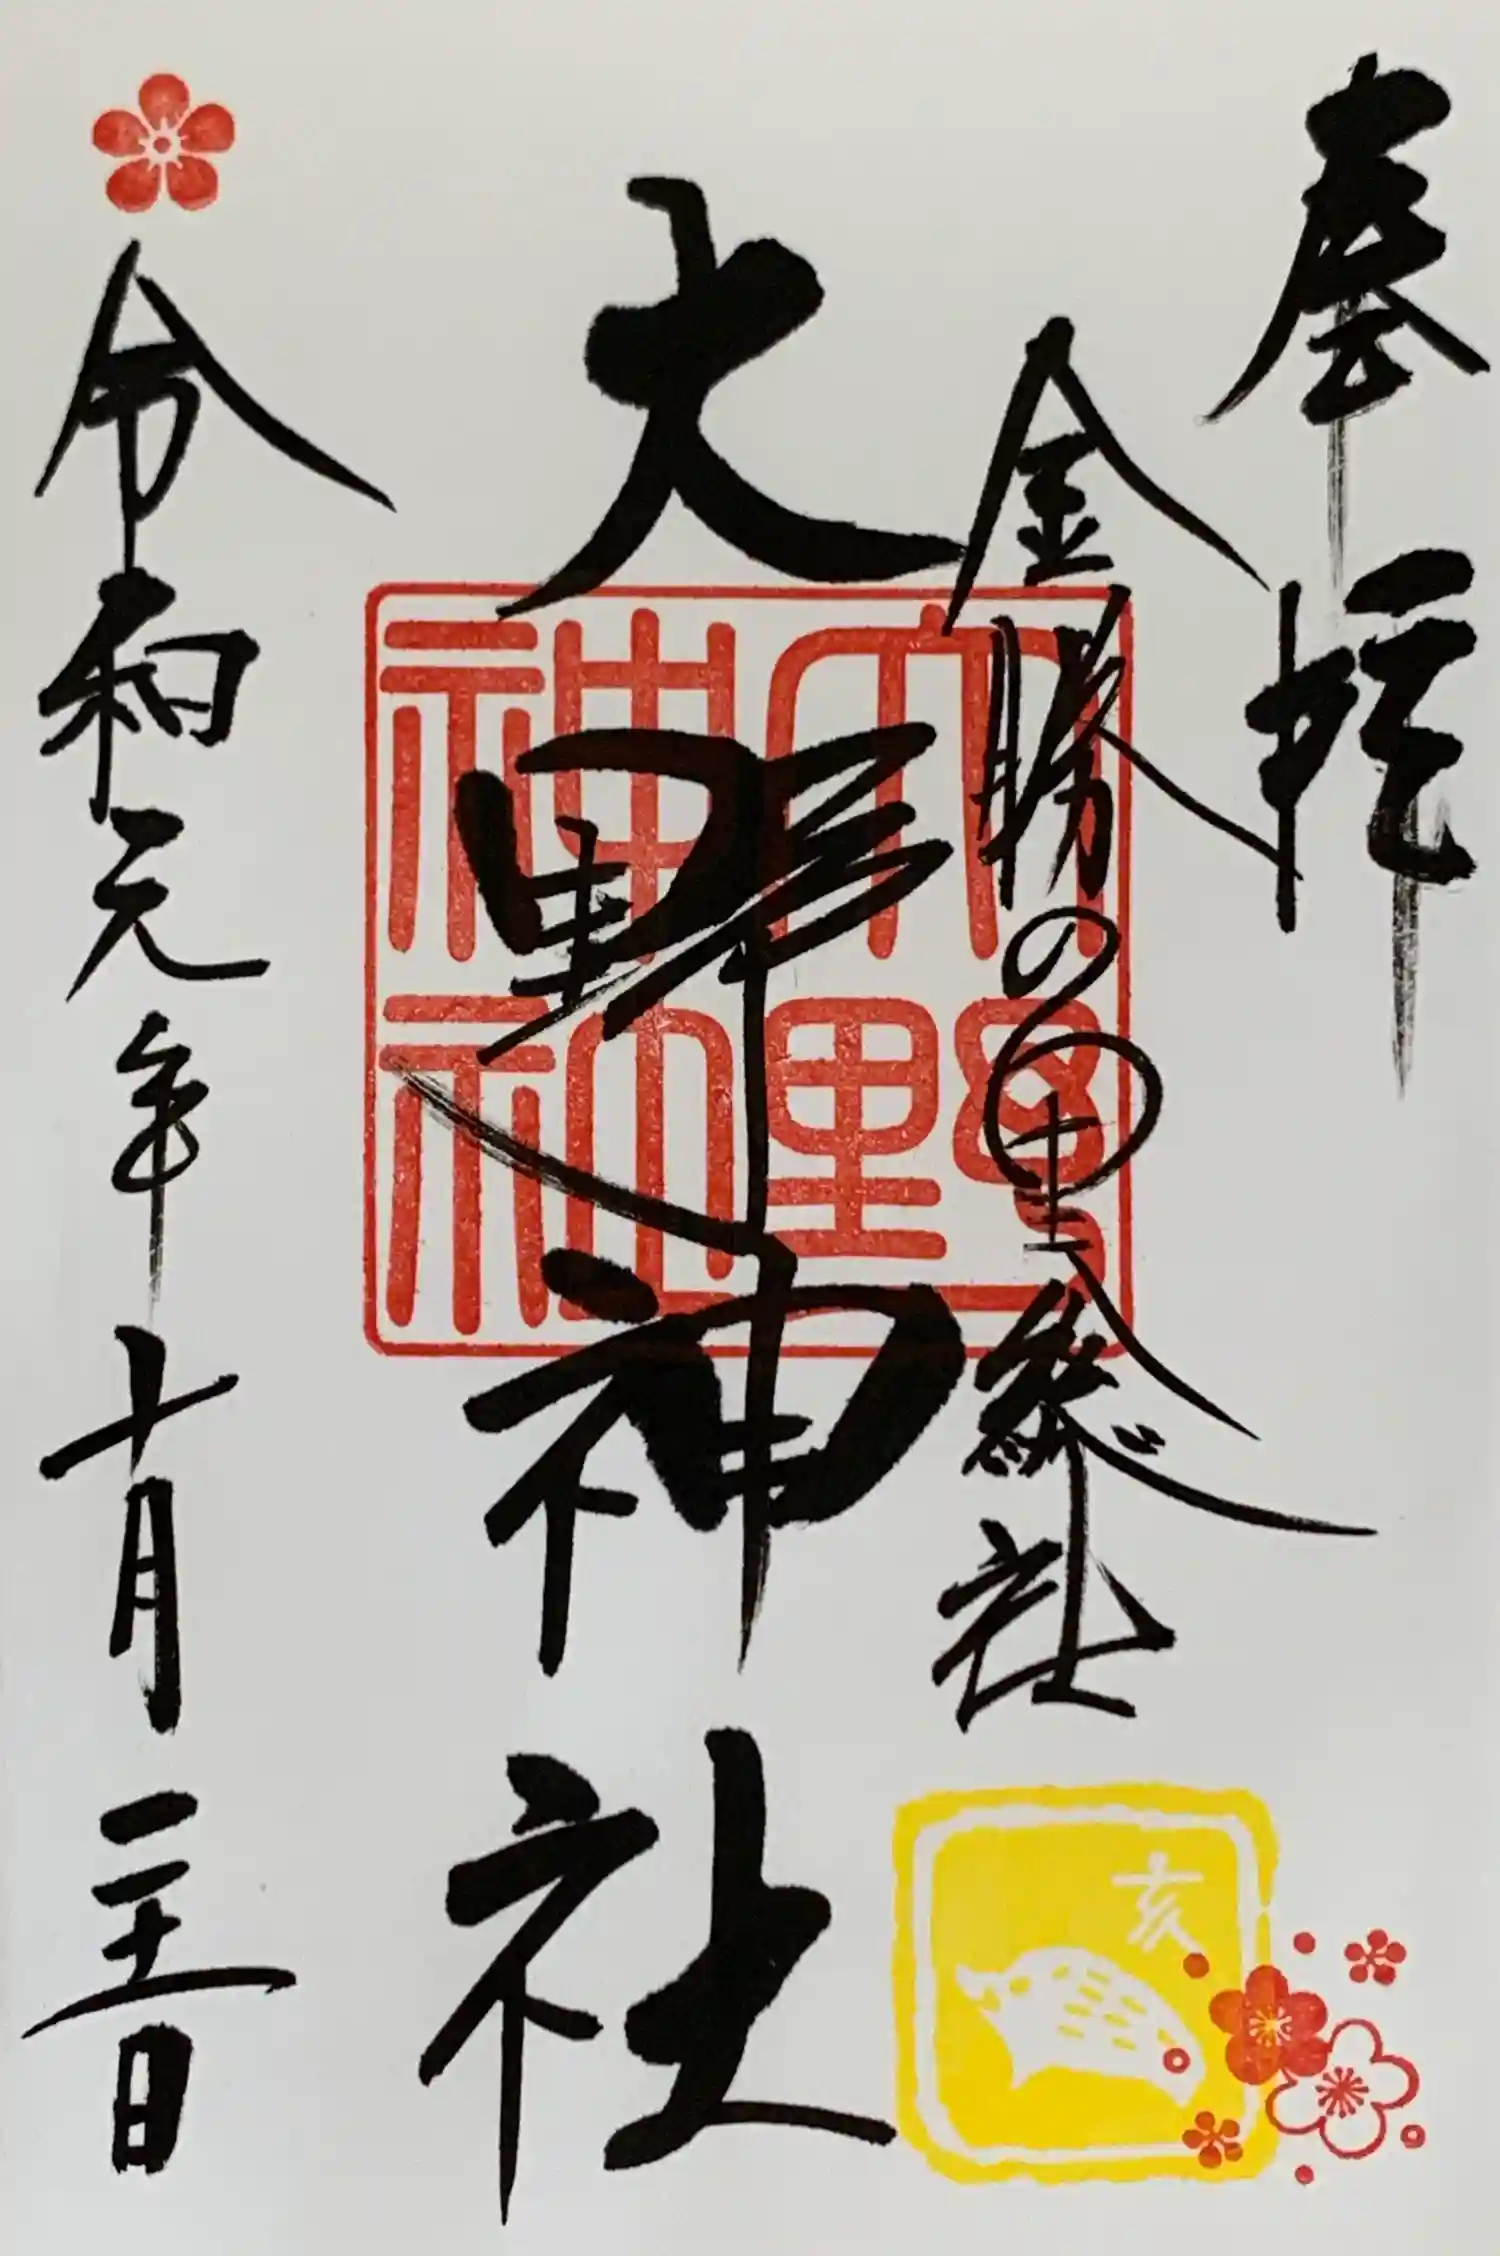 奉拝
金勝の里総社
大野神社
令和元年十月二十一日
大野
神社
亥